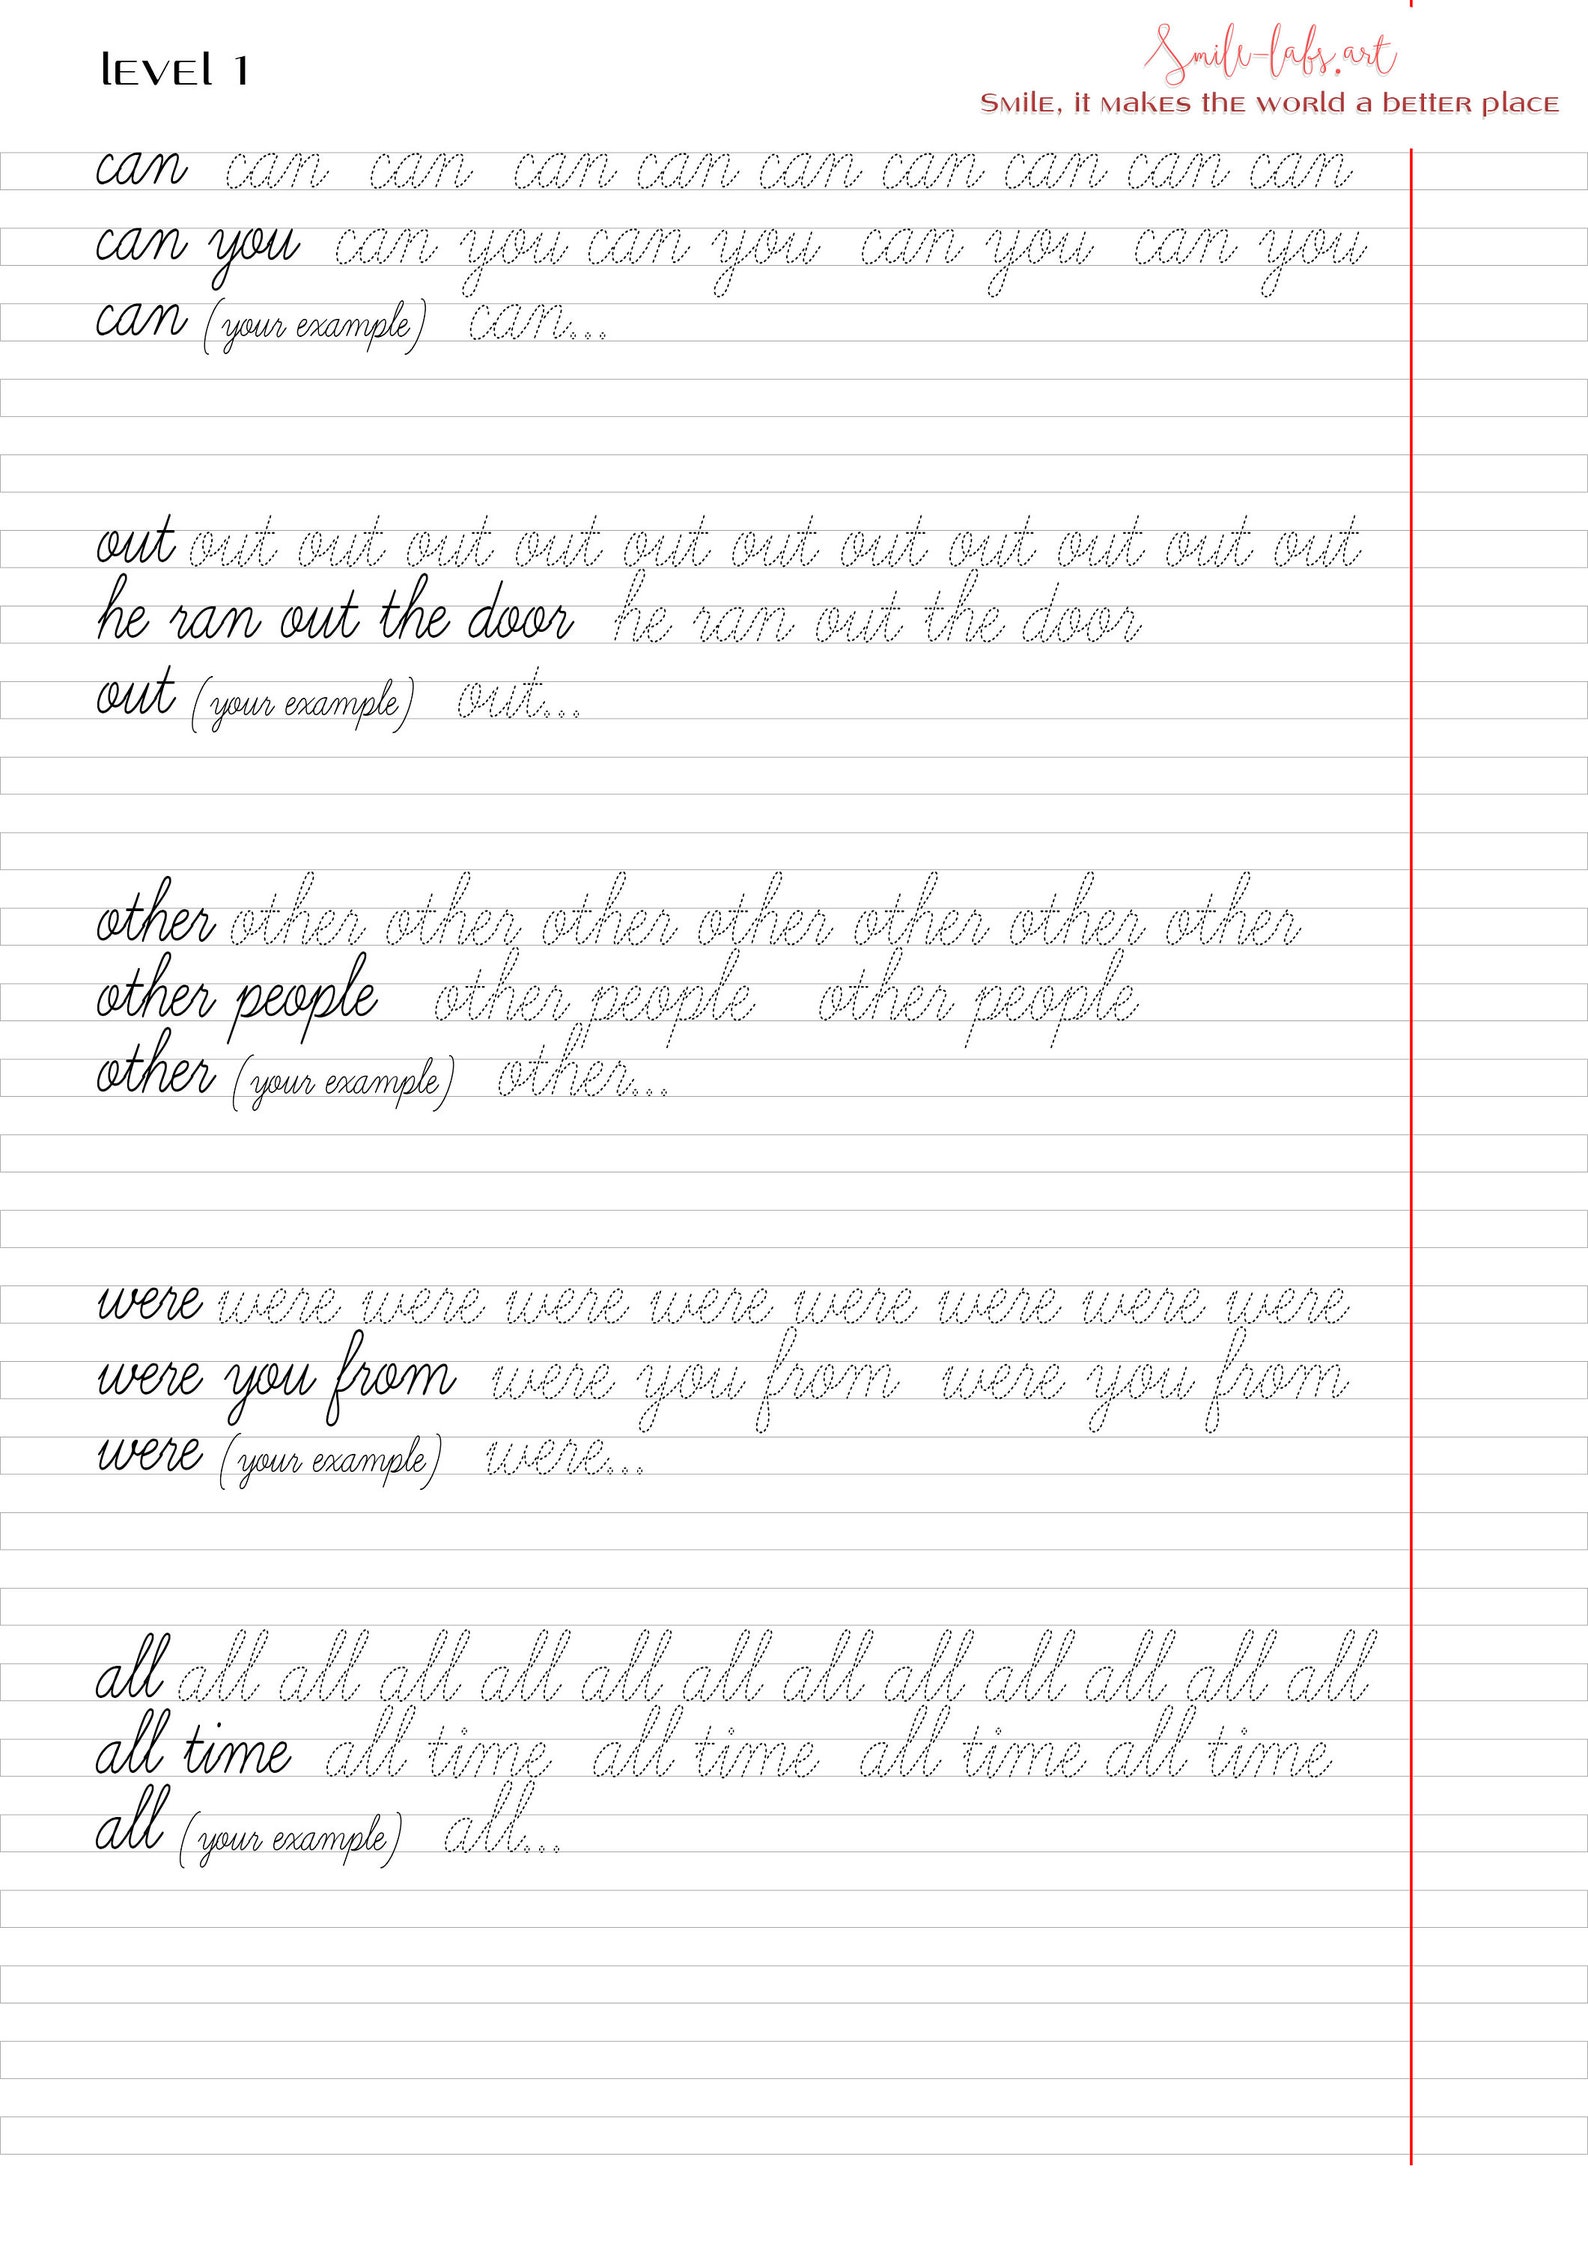 level 1
Smile-labs.art
Smile, it makes the world a better place
can can can can can can can can can can
can you can you can you can you can you
can (your example) can...
out out out out out out out out out out out out
he ran out the door he ran out the door
out (your example) out...
other other other other other other other other
other people other people other people
other (your example) other...
were were were were were were were were were
were you from were you from were you from
were (your example) were...
all all all all all all all all all all all all all
all time all time all time all time all time
all (your example) all...